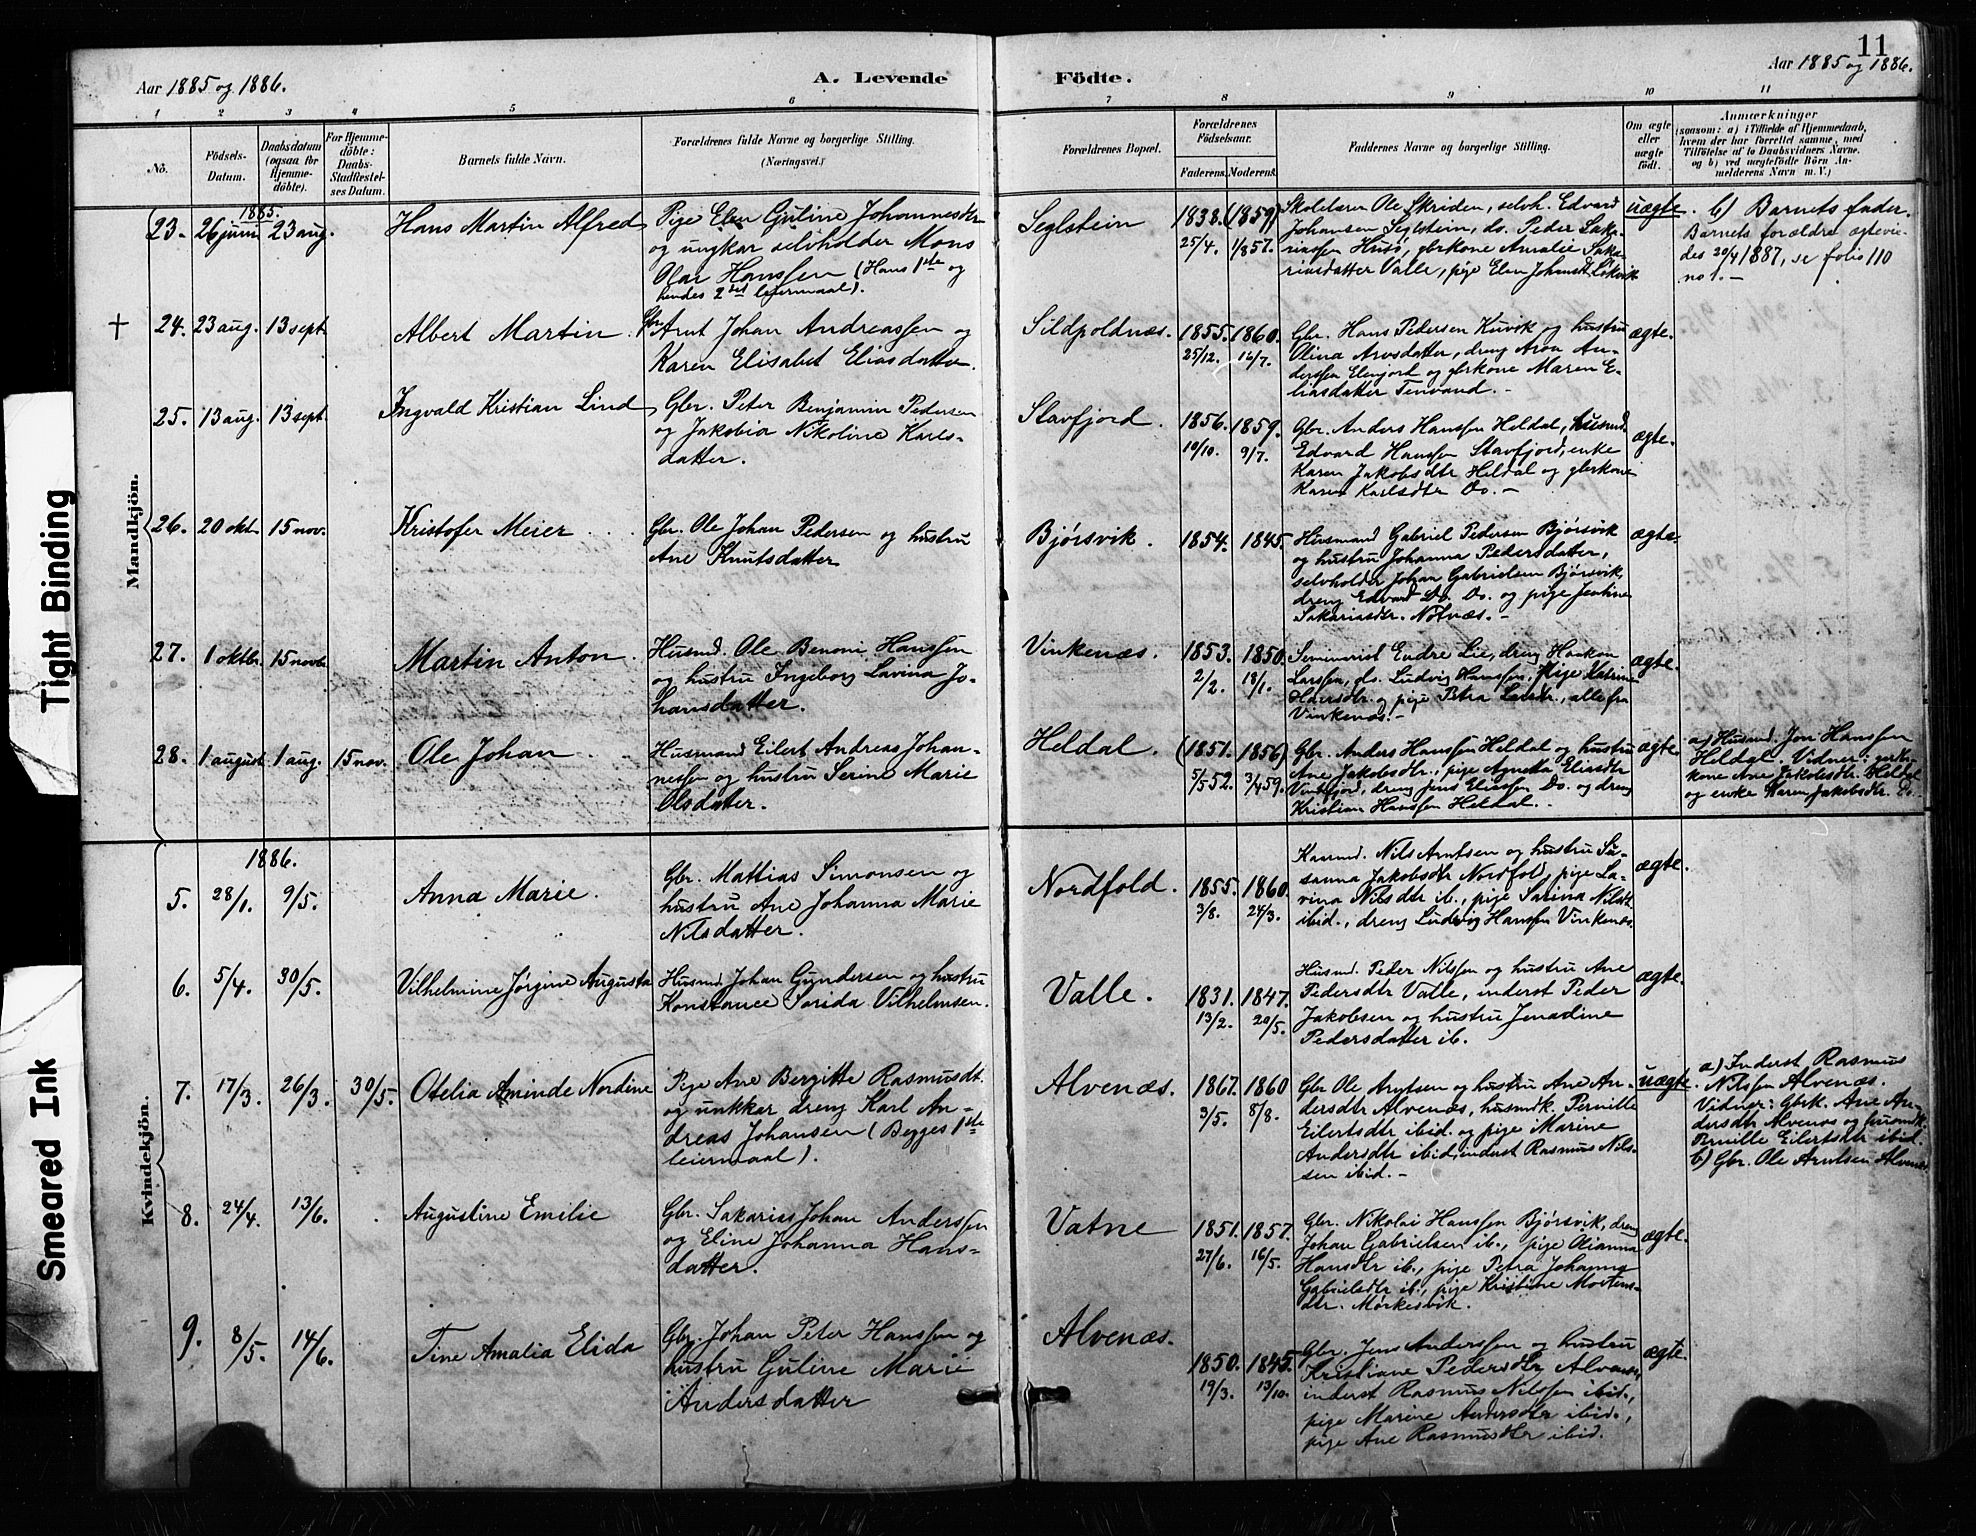 11
Aar 1885 og 1886.
A. Levende Födte.
Aar 1885 og 1886.
1 2 3 4 5 6 7 8 9 10 11
No.
Födsels-Datum.
Daabsdatum (ogsaa for Hjemme-döbte).
For Hjemme-döbte: Daabs-Stadfæstel-ses Datum.
Barnets fulde Navn.
Forældrenes fulde Navne og borgerlige Stilling.
(Næringsvei.)
Forældrenes Bopæl.
Forældrenes Födselsaar.
Faderens. Moderens.
Faddernes Navne og borgerlige Stilling.
Om ægte eller uægte födt.
Anmærkninger
(saasom: a) i Tilfælde af Hjemmedaab,
hvem der har forrettet samme, med
Tilföielse af to Daabsvidners Navne.
og b) ved uægtefödte Börn An-
melderens Navn m. V.)
Mandkjön.
1885.
23. 26 juni 23 aug. Hans Martin Alfred
Pige Elen Guline Johannesdtr
og ungkar selvholder Mons
Olar Hanssen (Hans 1ste og
hendes 2det leiermaal).
Seglstein 1838. (1859)
25/4. 1/857.
Skolelærer Ole Skriden, selvh. Edvard
Johansen Seglstein, do. Peder Saka-
riassen Husø, gbrkone Amalie Saka-
riasdatter Valle, pige Elen Johansdt. Løkvik
uægte. b) Barnets fader.
Barnets forældre ægtevie-
des 20/4 1887, se folio 110
no 1. -
+ 24. 23 aug. 13 sept. Albert Martin.
Gbr. Arnt Johan Andreassen og
Karen Elisabet Eliasdatter.
Sildpoldnæs. 1855. 1860.
25/12. 16/7.
Gbr. Hans Pedersen Kuvik og hustru
Olina Arnsdatter, dreng Aron An-
derssen Elvfjord og gbrkone Maren E-
liasdatter Tenvand. -
ægte.
25. 13 aug. 13 sept. Ingvald Kristian Lind
Gbr. Peter Benjamin Pedersen
og Jakobia Nikoline Karls-
datter.
Stavfjord. 1856. 1859.
10/10. 9/7.
Gbr. Anders Hanssen Heldal, husmd.
Edvard Hanssen Stavfjord, enke
Karen Jakobsdtr Heldal og gbrkone
Karen Karlsdtr Do. -
ægte.
26. 20 okt. 15 nov. Kristofer Meier
Gbr. Ole Johan Pedersen og hustru
Ane Knutsdatter
Bjørsvik. 1854. 1845.
Husmand Gabriel Pedersen Bjørsvik
og hustru Johanna Pedersdatter,
selvholder Johan Gabrielsen Bjørsvik,
dreng Edvard Do. Do. og pige Jentine
Sakariasdtr. Notnæs. -
ægte.
27. 1 oktbr. 15 novb. Martin Anton.
Husmd. Ole Benoni Hanssen
og hustru Ingeborg Lavina Jo-
hansdatter.
Vinkenæs. 1853. 1850.
2/2. 18/1.
Seminarist Endre Lie, dreng Haakon
Larssen, do. Ludvig Hanssen, pige Katrine
Hansdtr. og pige Petra Larsdtr., alle fra
Vinkenæs. -
ægte.
28. 1 august 1 aug. 15 nov. Ole Johan
Husmand Eilert Andreas Johan-
nessen og hustru Serine Marie
Olsdatter.
Heldal. (1851. 1856)
5/552. 3/459.
Gbr. Anders Hanssen Heldal og hustru
Ane Jakobsdtr., pige Agnetta Eliasdtr
Vintfjord, dreng Jens Eliassen Do. og dreng
Kristian Hanssen Heldal. -
ægte.
a) Husmd. Jon Hanssen
Heldal. Vidner: gbr-
kone Ane Jakobsdtr. Heldal
og enke Karen Jakobsdtr. Do.
Kvindekjön.
1886.
5. 28/1. 9/5. Anna Marie.
Gbr. Mattias Simonsen og
hustru Ane Johanna Marie
Nilsdatter.
Nordfold. 1855. 1860.
3/8. 24/3.
Kaarmd. Nils Arntsen og hustru Su-
sanna Jakobsdtr Nordfold, pige La-
vina Nilsdtr ib., pige Sarina Nilsdtr
ibid., dreng Ludvig Hanssen Vinkenæs.
ægte.
6. 5/4. 30/5. Vilhelmine Jørgine Augusta
Husmd. Johan Gundersen og hustru
Konstance Torida Vilhelmsen.
Valle. 1831. 1847.
13/2. 20/5.
Husmd. Peder Nilssen og hustru Ane
Pedersdtr Valle, inderst Peder
Jakobsen og hustru Jenadine
Pedersdatter ib.
ægte.
7. 17/3. 26/3. 30/5. Otelia Aminde Nordine
Pige Ane Bergitte Rasmusdt.
og unkkar dreng Karl An-
dreas Johansen (Begges 1ste
leiermaal).
Alvenæs. 1867. 1860
3/5. 8/8.
Gbr Ole Arntsen og hustru Ane An-
dersdtr Alvenæs, husmdk. Pernille
Eilertsdtr ibid. og pige Marine
Andersdtr ibid, inderst Rasmus Nils-
sen ibid. -
uægte.
a) Inderst Rasmus
Nilssen Alvenæs.
Vidner: Gbrk. Ane An-
dersdtr Alvenæs og husmdk.
Pernille Eilertsdtr ibid.
b) Gbr. Ole Arntsen Alvenæs
8. 24/4. 13/6. Augustine Emilie
Gbr. Sakarias Johan Anderssen
og Eline Johanna Hans-
datter.
Vatne 1851. 1857.
27/6. 16/5.
Gbr. Nikolai Hanssen Bjørsvik, dreng
Johan Gabrielsen ib., pige Olianna
Hansdtr ib., pige Petra Johanna
Gabrielsdtr ib., pige Kristine Mortens-
dtr. Mørkesvik.
ægte.
9. 8/5. 14/6. Tine Amalia Elida
Gbr. Johan Peter Hanssen og
hustru Guline Marie
Andersdatter
Alvenæs. 1850. 1845.
19/3. 13/10.
Gbr. Jens Anderssen og hustru
Kristiane Pedersdtr Alvenæs,
inderst Rasmus Nilssen ibid.,
pige Marine Andersdtr ibid.,
pige Ane Rasmusdtr ibid.
ægte.
Tight Binding
Smeared Ink